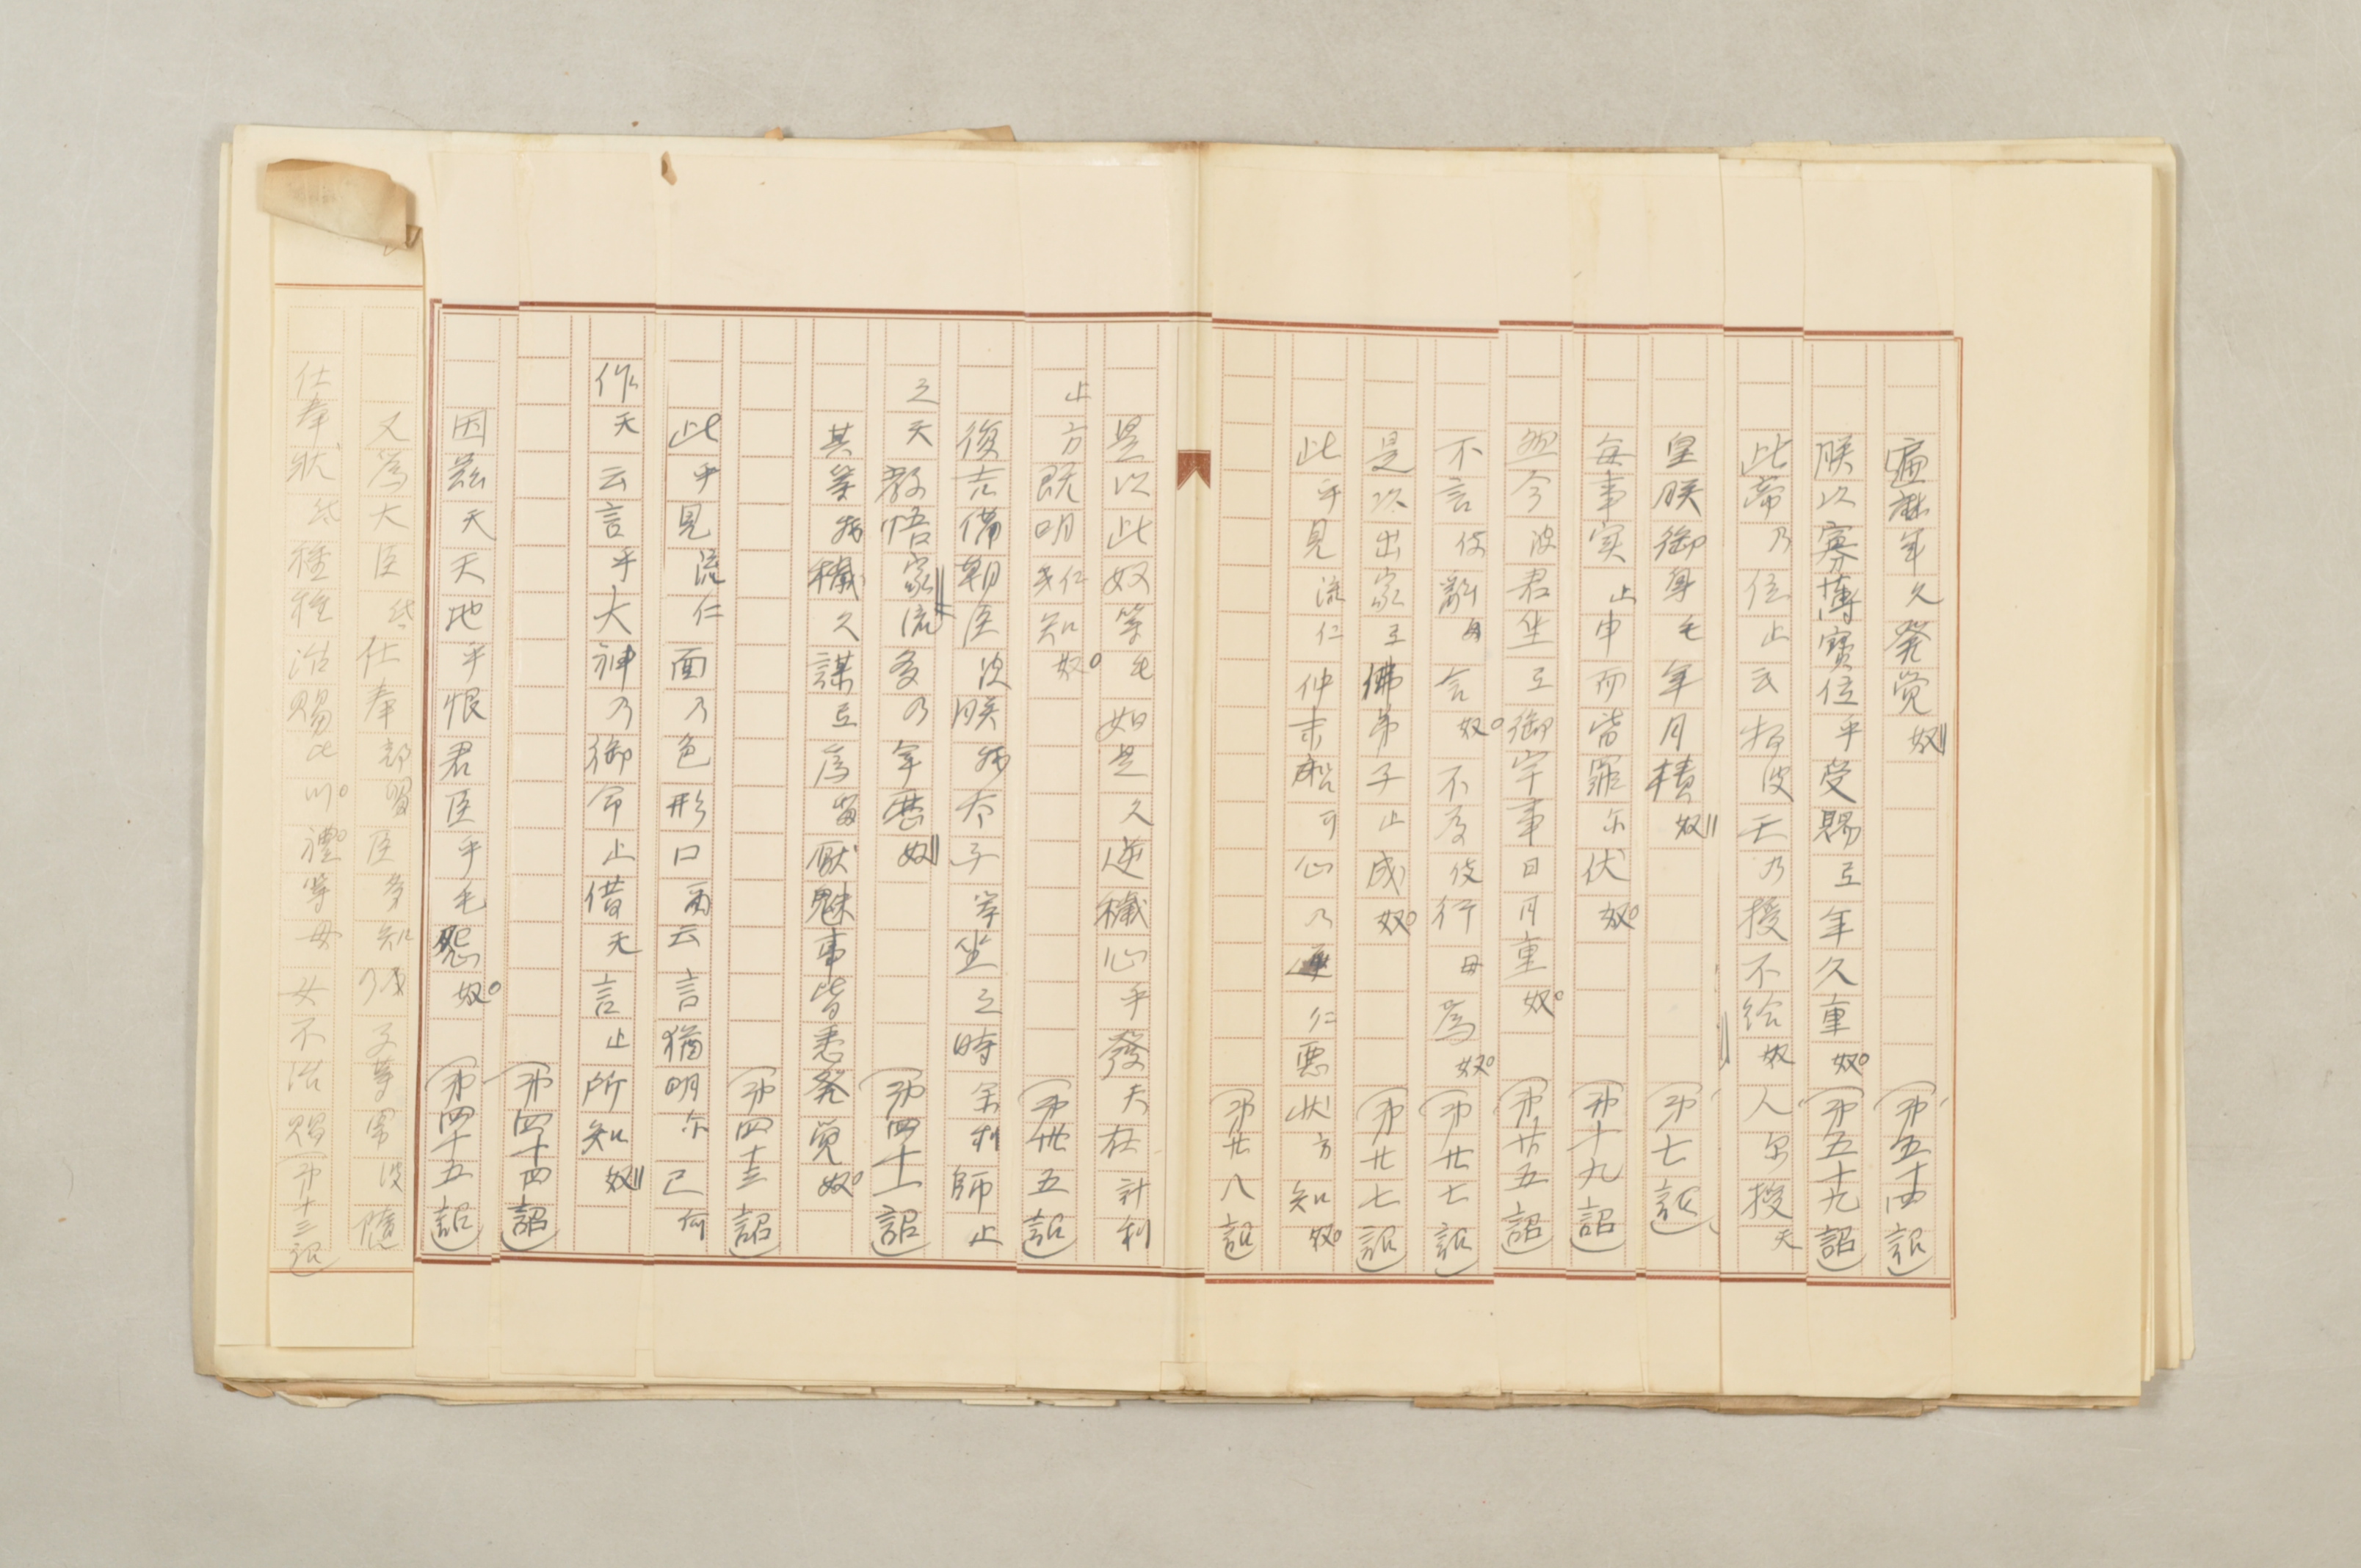 遍麻年久発覚奴 (第五十四詔)
朕以寡薄宝位乎受賜弖年久重奴 (第五十九詔)
此帝乃位止云物波天乃授不給奴人尓授天
皇朕御身毛年月積奴 (第七詔)
毎事実止申而皆罪尓伏奴 (第十九詔)
然今波君坐弖御宇事日月重奴 (第廿五詔)
不言伎辞母言奴 不為伎行母為奴 (第廿七詔)
是以出家弖佛弟子止成奴 (第廿七詔)
此乎見流仁仲末呂可心乃 仁悪状方知奴
(第廿八詔)
是以此奴等毛如是久逆穢心乎發天在計利
止方既明仁知奴 (第卅五詔)
復吉備朝臣波朕我太子等坐之時余利師止
之天教悟家流多乃年歴奴 (第四十一詔)
其等我穢久謀弖為留厭魅事皆悉発覚奴
(第四十三詔)
此乎見流仁面乃色形口尓云言猶明尓己何
作天云言乎大神乃御命止借天言止所知奴
(第四十四詔)
因茲天天地乎恨君臣乎毛怨奴 (第四十五詔)
又為大臣弖仕奉部留臣多知乃 子等男波随
仕奉状弖種種治賜比川 禮等母女不治賜 (第十三詔)